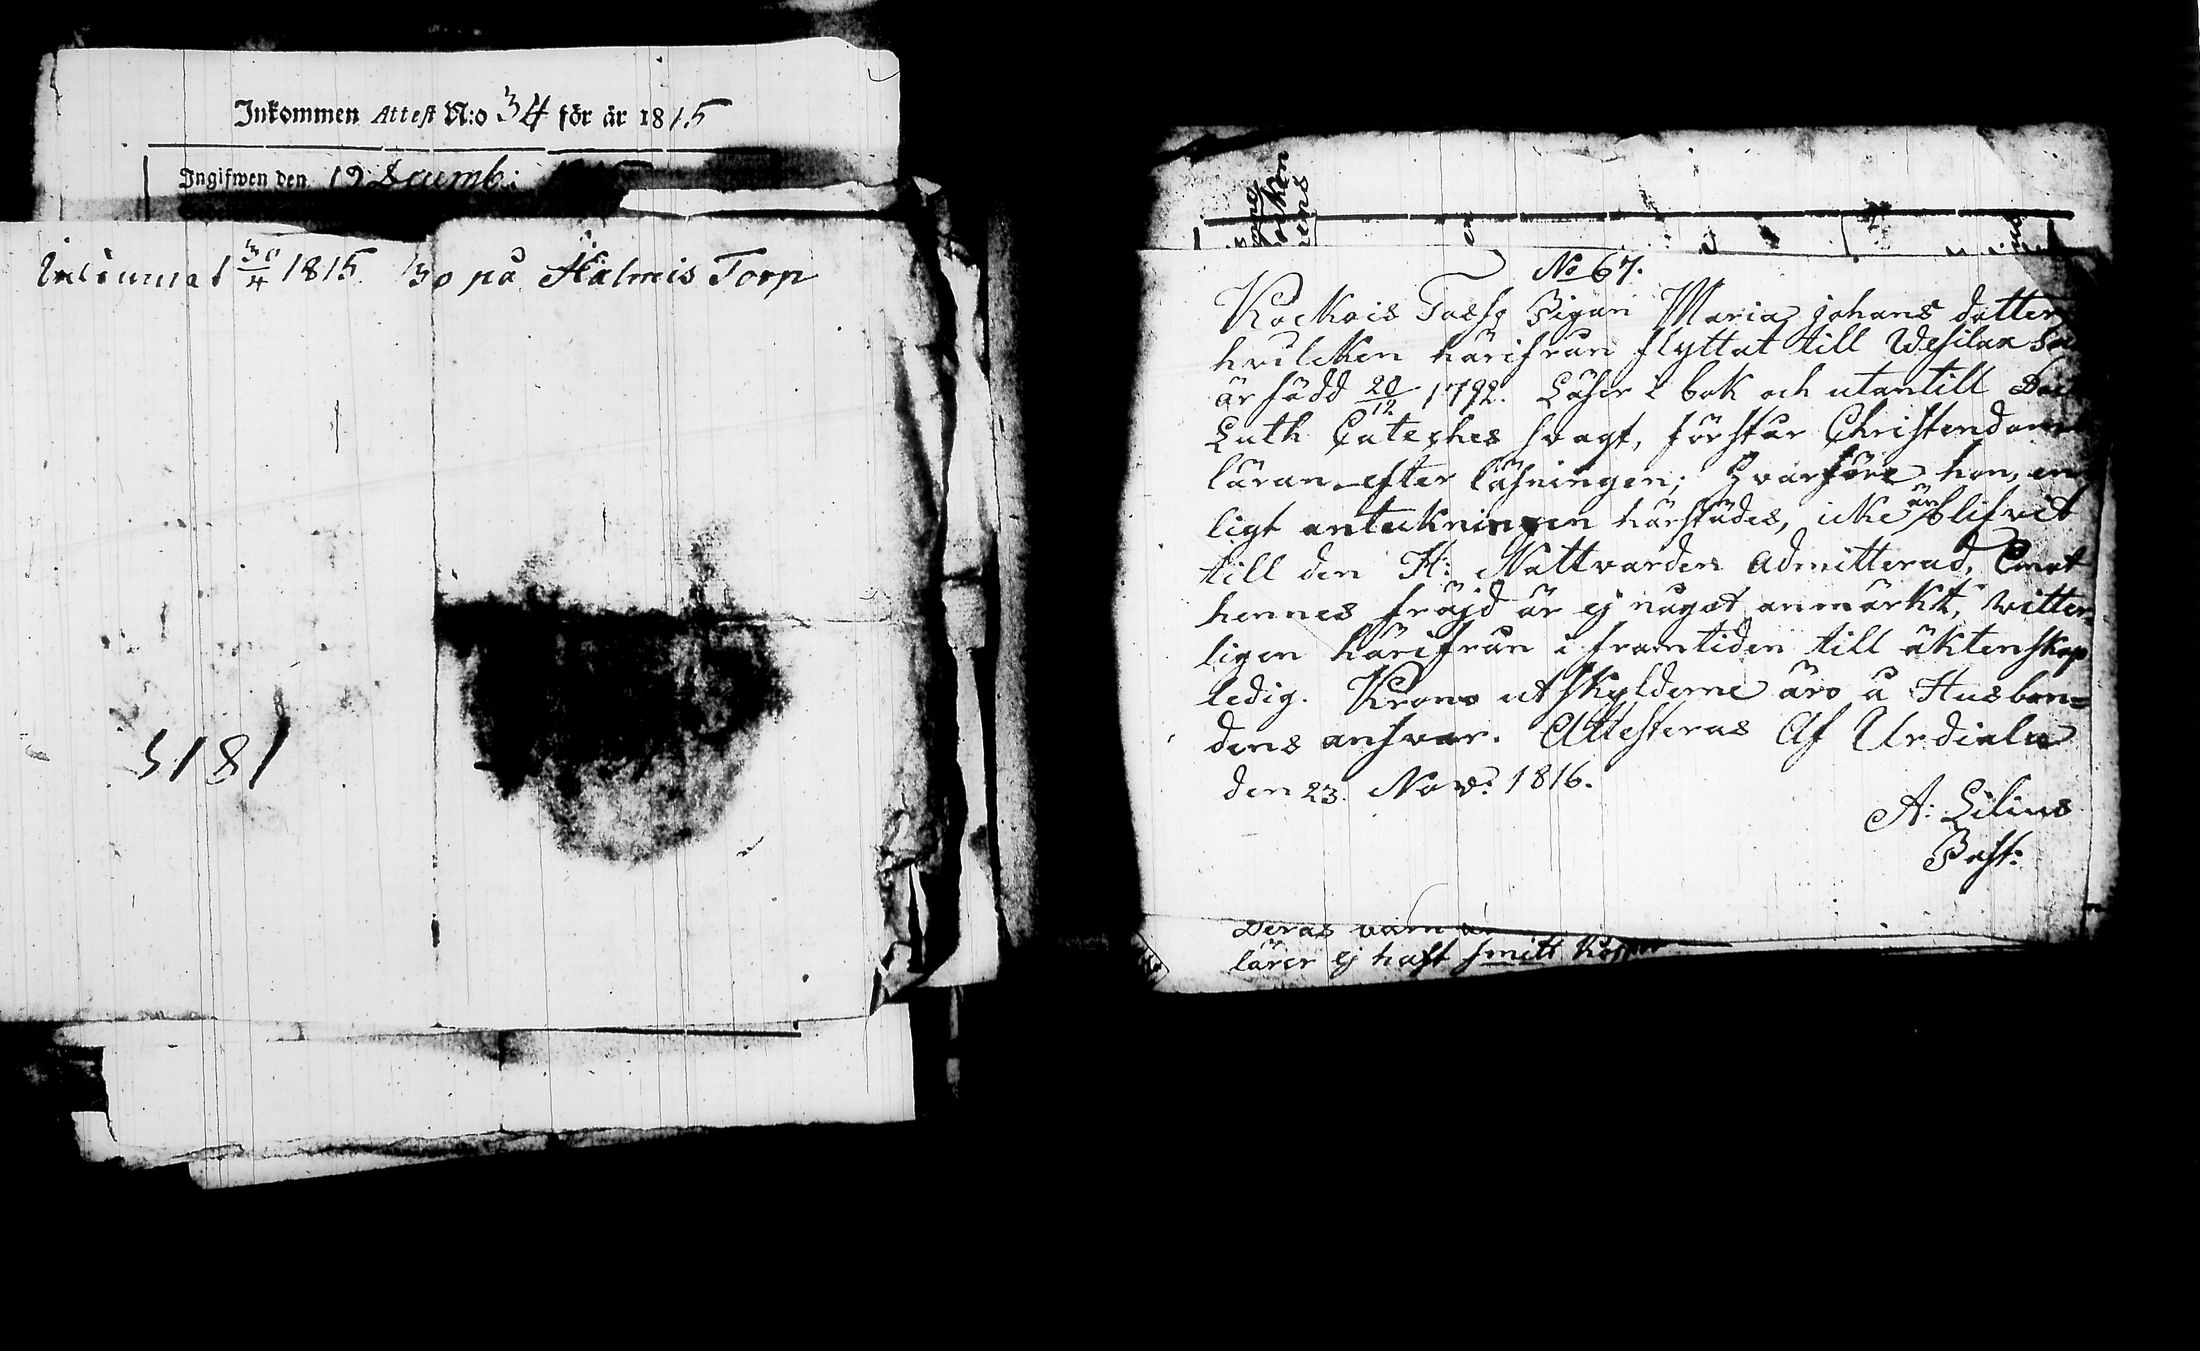 Inkommen Attest N:o 34 för år 1815
Ingifwen den 19 Decemb:
Inlämnat 30/4 1815. Bo på Halmis Torp
5181
No 67.
Kockois Tassg Pigan Maria Johans dotter
hvilcken härifrån flyttat till Wesilax
är född 20/12 1792. Läser i bok och utantill
Luth Cateches svagt, förstår Christendoms
läran efter läsningen; Hvarföre hon, en
ligt antekningen härstädes, icke är blifvit
till den H: Nattvarden admitterad, Emot
hennes fräjd är ej något anmärkt, witter-
ligen härifrån i framtiden till äktenskap
ledig. Krono utskylderne äro å Husbon=
dens ansvar. Attesteras Af Urdiala
den 23. Nov: 1816.
A: Lilius
Past:
Deras barn
lärer ej haft smitt